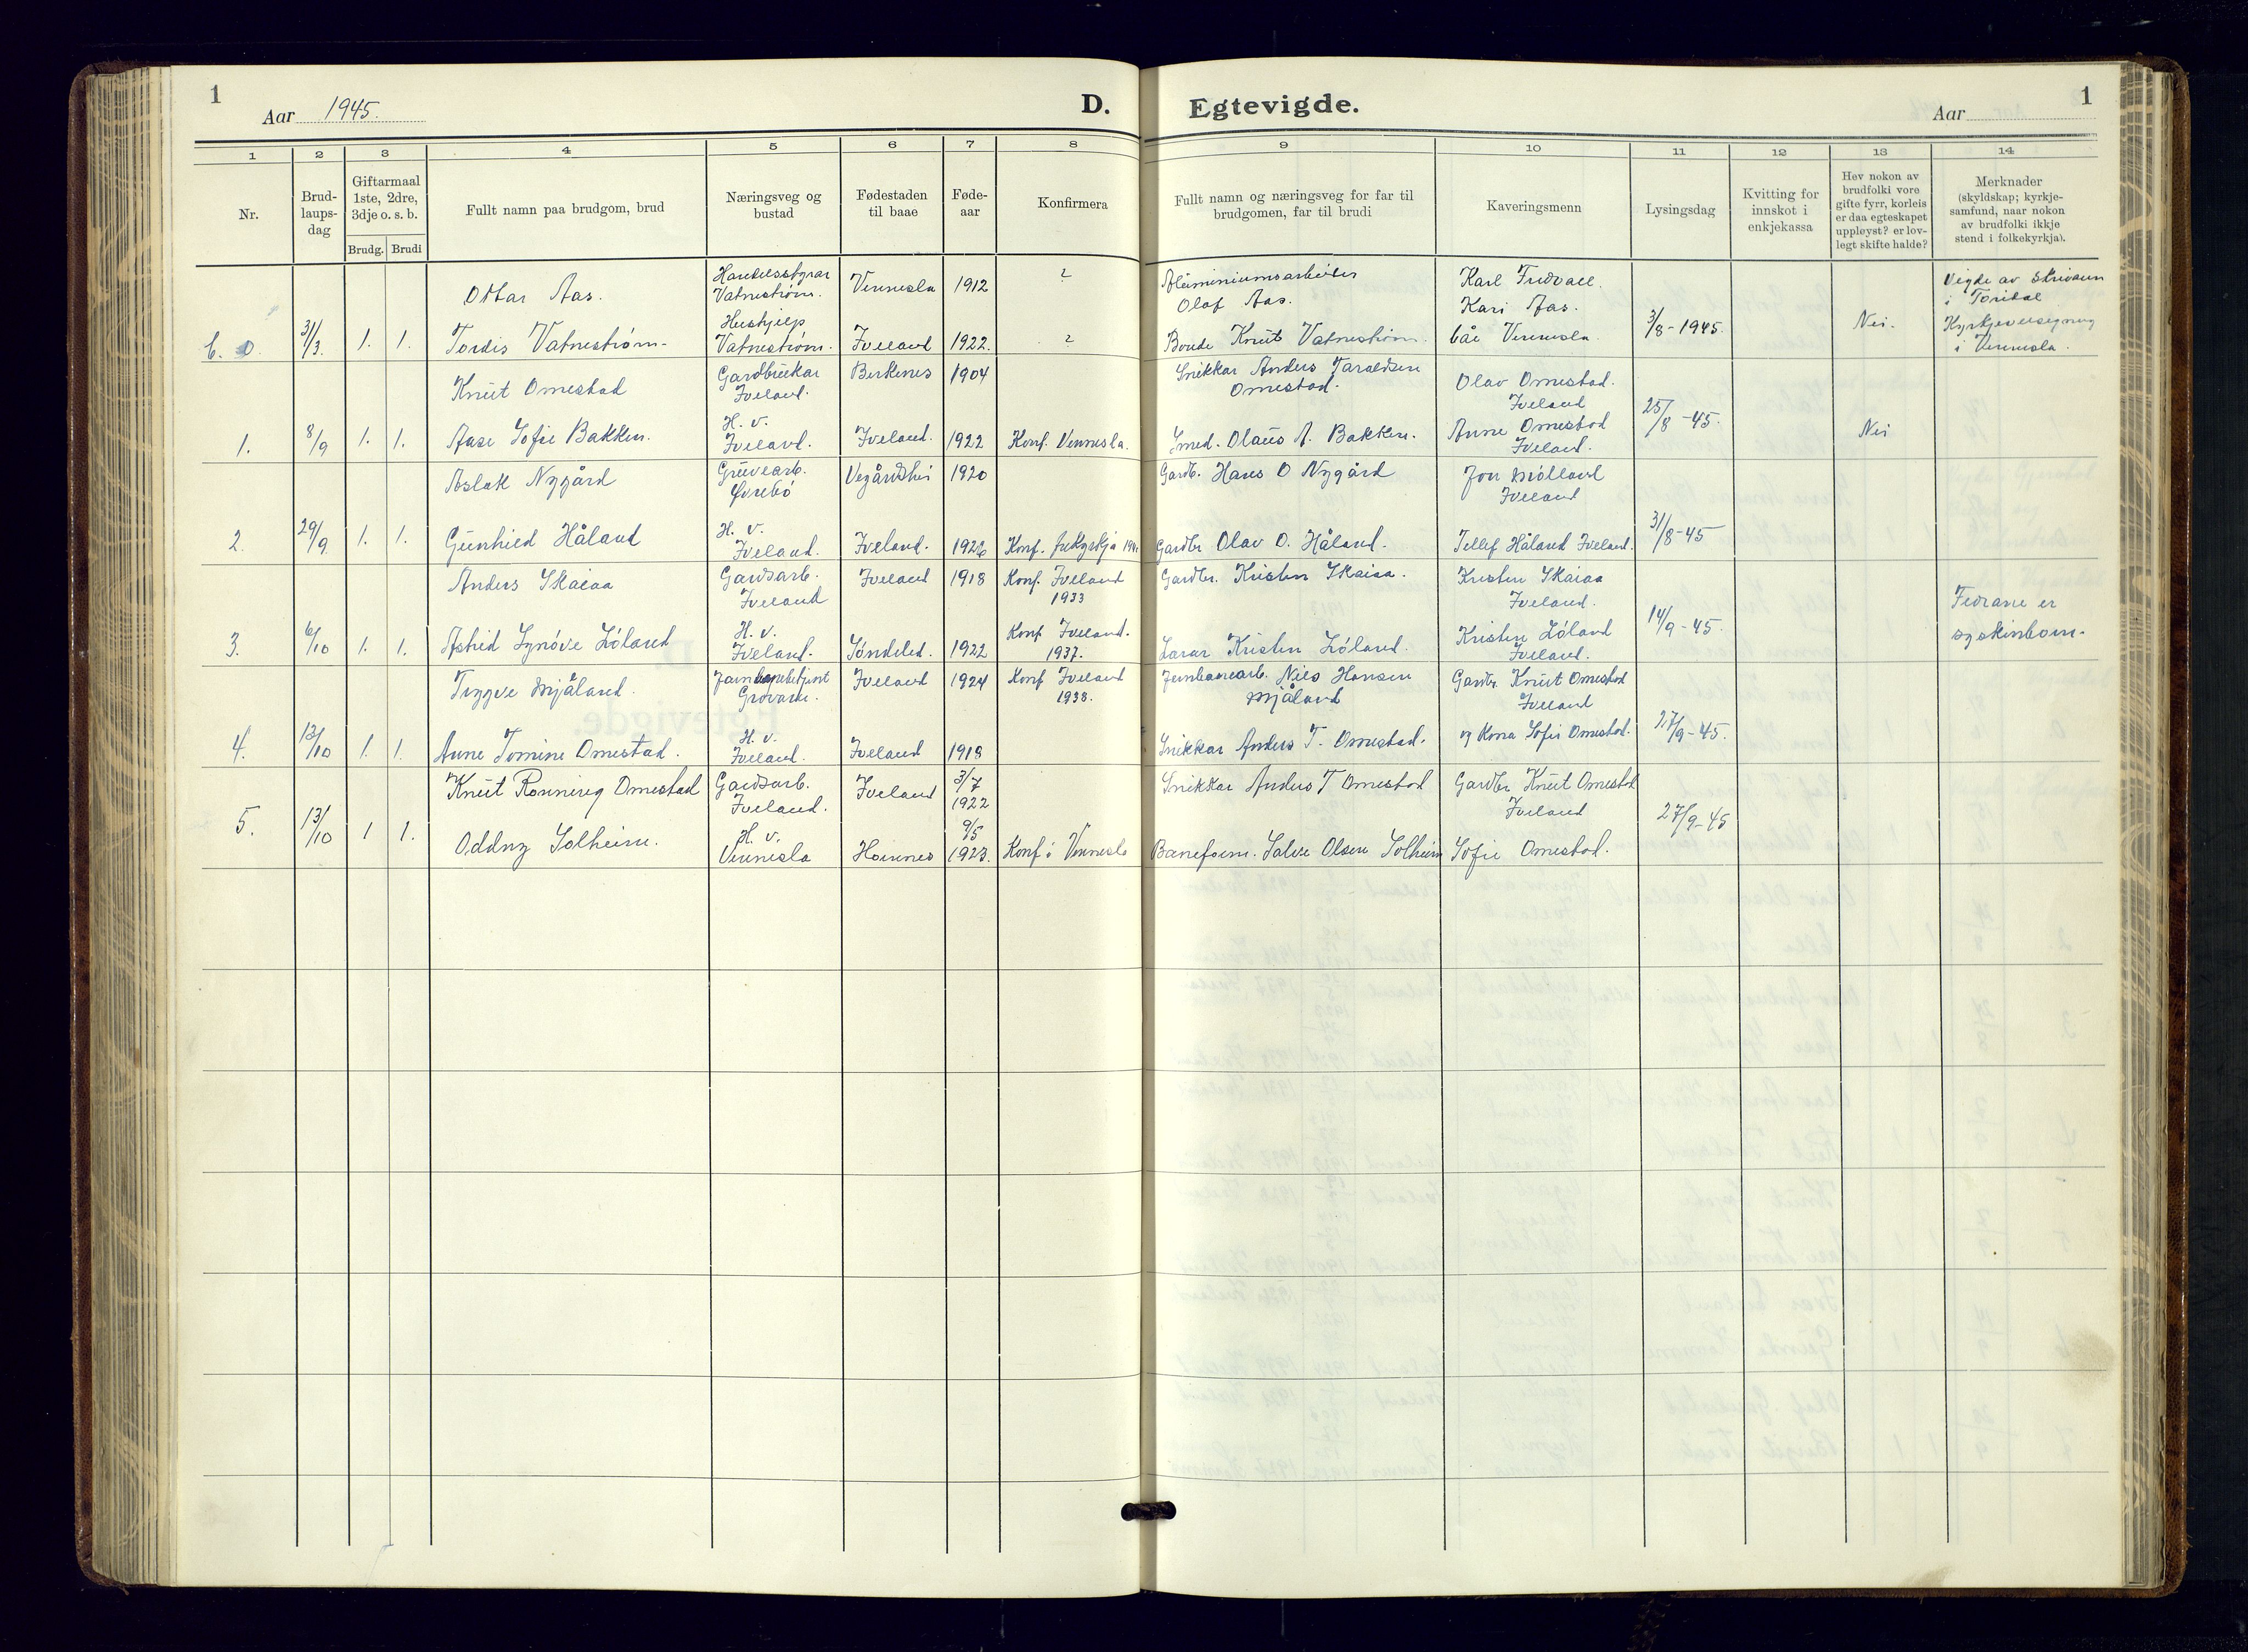 1
Aar 1945.
D. Egtevigde.
Aar
1
1 2 3 4 5 6 7 8 9 10 11 12 13 14
Nr.
Brud-
laups-
dag
Giftarmaal
1ste, 2dre,
3dje o. s. b.
Brudg. Brudi
Fullt namn paa brudgom, brud
Næringsveg og
bustad
Fødestaden
til baae
Føde-
aar
Konfirmera
Fullt namn og næringsveg for far til
brudgomen, far til brudi
Kaveringsmenn
Lysingsdag
Kvitting for
innskot i
enkjekassa
Hev nokon av
brudfolki vore
gifte fyrr, korleis
er daa egteskapet
uppløyst? er lov-
legt skifte halde?
Merknader
(skyldskap; kyrkje-
samfund, naar nokon
av brudfolki ikkje
stend i folkekyrkja).
Ottar Aas.
Handelsstyrar
Vatnestrøm.
Vennesla 1912 ?
Aluminiumsarbeider
Olaf Aas.
Karl Tredvall.
Kari Aas.
Vigde av
i Torridal
31/3. 1. 1. Tordis Vatnestrøm
Hushjelp
Vatnestrøm.
Iveland 1922. ?
Bonde Knut Vatnestrøm.
båe Vennesla.
3/8-1945. Nei.
Kyrkjevelsigning
i Vennesla.
Knut Omestad
Gardbrukar
Iveland.
Birkenes 1904
Snikkar Anders Taraldsen
Omestad.
Olav Omestad.
Iveland
1. 8/9 1. 1. Aase Sofie Bakken.
H. v.
Iveland.
Iveland. 1922 Konf. Vennesla.
Smed. Olaus A. Bakken.
Anne Omestad
Iveland.
25/8-45. Nei
Aslak Nygård
Gruvearb.
Øvrebø
Vegårdshei 1920
Gardb. Hans O Nygård
Jon Mølland
Iveland
2. 29/9 1. 1. Gunhild Håland
H. v.
Iveland.
Iveland. 1926 Konf.
Gardbr Olav O. Håland.
Tellef Håland Iveland.
31/8-45
Anders Skaiaa
Gardsarb.
Iveland
Iveland 1918
Konf. Iveland
1933
Gardbr. Kristen Skaiaa.
Kristen Skaiaa
Iveland.
3. 6/10 1. 1. Astrid Synøve Løland
H. v.
Iveland.
Søndeled. 1922
Konf Iveland.
1937.
Lærar Kristen Løland.
Kristen Løland
Iveland.
14/9-45.
Fedrane er
syskinborn.
Trygve Mjåland.
Grovane.
Iveland 1924
Konf Iveland
1938.
Jernbanearb. Nils Hansen
Mjåland
Gardbr. Knut Omestad
Iveland
4. 13/10 1. 1. Anne Tomine Omestad.
H. v.
Iveland.
Iveland 1918
Snikkar Anders T. Omestad.
og Kona Sofie Omestad.
27/9-45.
Knut Ronning Omestad
Gardsarb.
Iveland.
Iveland
3/7
1922
Snikkar Anders T Omestad
Gardbr Knut Omestad
Iveland
5. 13/10 1 1. Oddny Solheim.
H. v.
Vennesla
Hornnes
9/5
1923.
Konf i Vennesla
Baneform. Salve Olsen Solheim
Sofie Omestad.
27/9-45